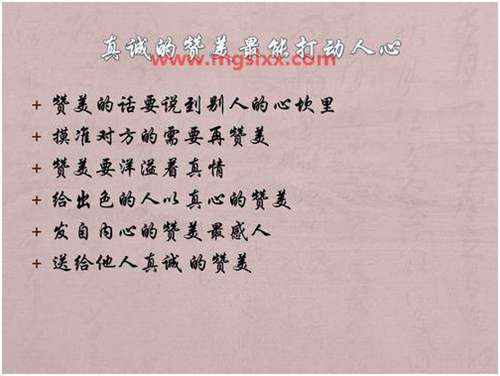 真诚的赞美最能打动人心
www.mgslxx.com
赞美的话要说到别人的心坎里
摸准对方的需要再赞美
赞美要洋溢着真情
给出色的人以真心的赞美
发自内心的赞美最感人
送给他人真诚的赞美